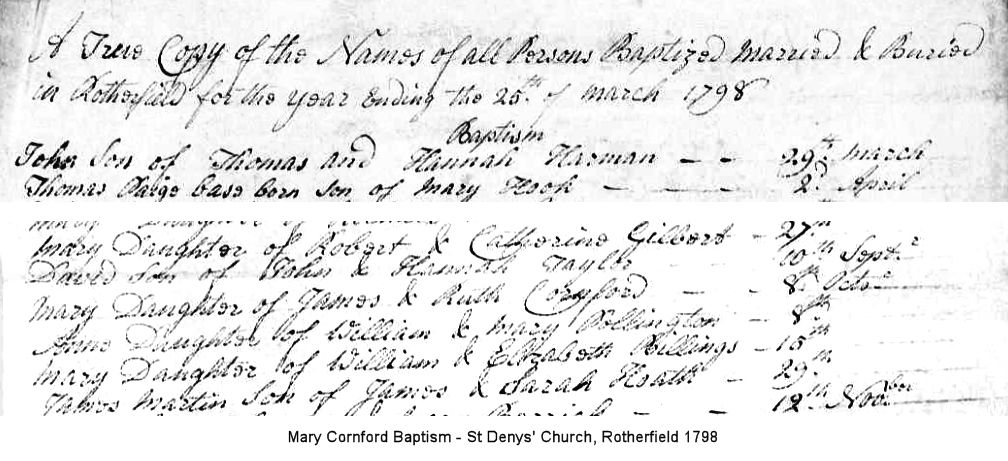 A True Copy of the Names of all Persons Baptized Married & Buried
in Rotherfield for the year Ending the 25th of March 1798
Baptism
John Son of Thomas and Hannah Harman – – 29th March
Thomas base born Son of Mary Hook – – – 2d April
Mary Daughter of
Mary Daughter of Robert & Catherine Gilbert – 27th
David Son of John & Hannah Taylor – 10th Septr
Mary Daughter of James & Ruth Cornford – – 8th Octor
Anne Daughter of William & Mary Pollington – 8th
Mary Daughter of William & Elizabeth Billings – 15th
James Martin Son of James & Sarah Heath – 29th
12th Novber
Mary Cornford Baptism - St Denys' Church, Rotherfield 1798